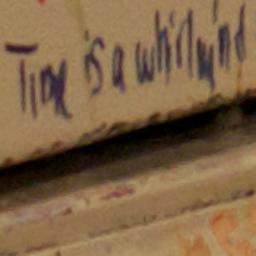 Time is a whirlwind